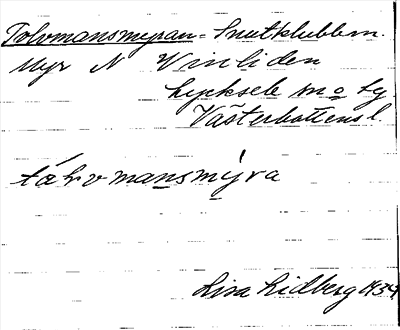 Tolvmansmyran = Snutklubben.
Myr N Vinliden
Lycksele sn o tg
Västerbottens l.
tålvmansmýra
Lisa Lidberg 1934